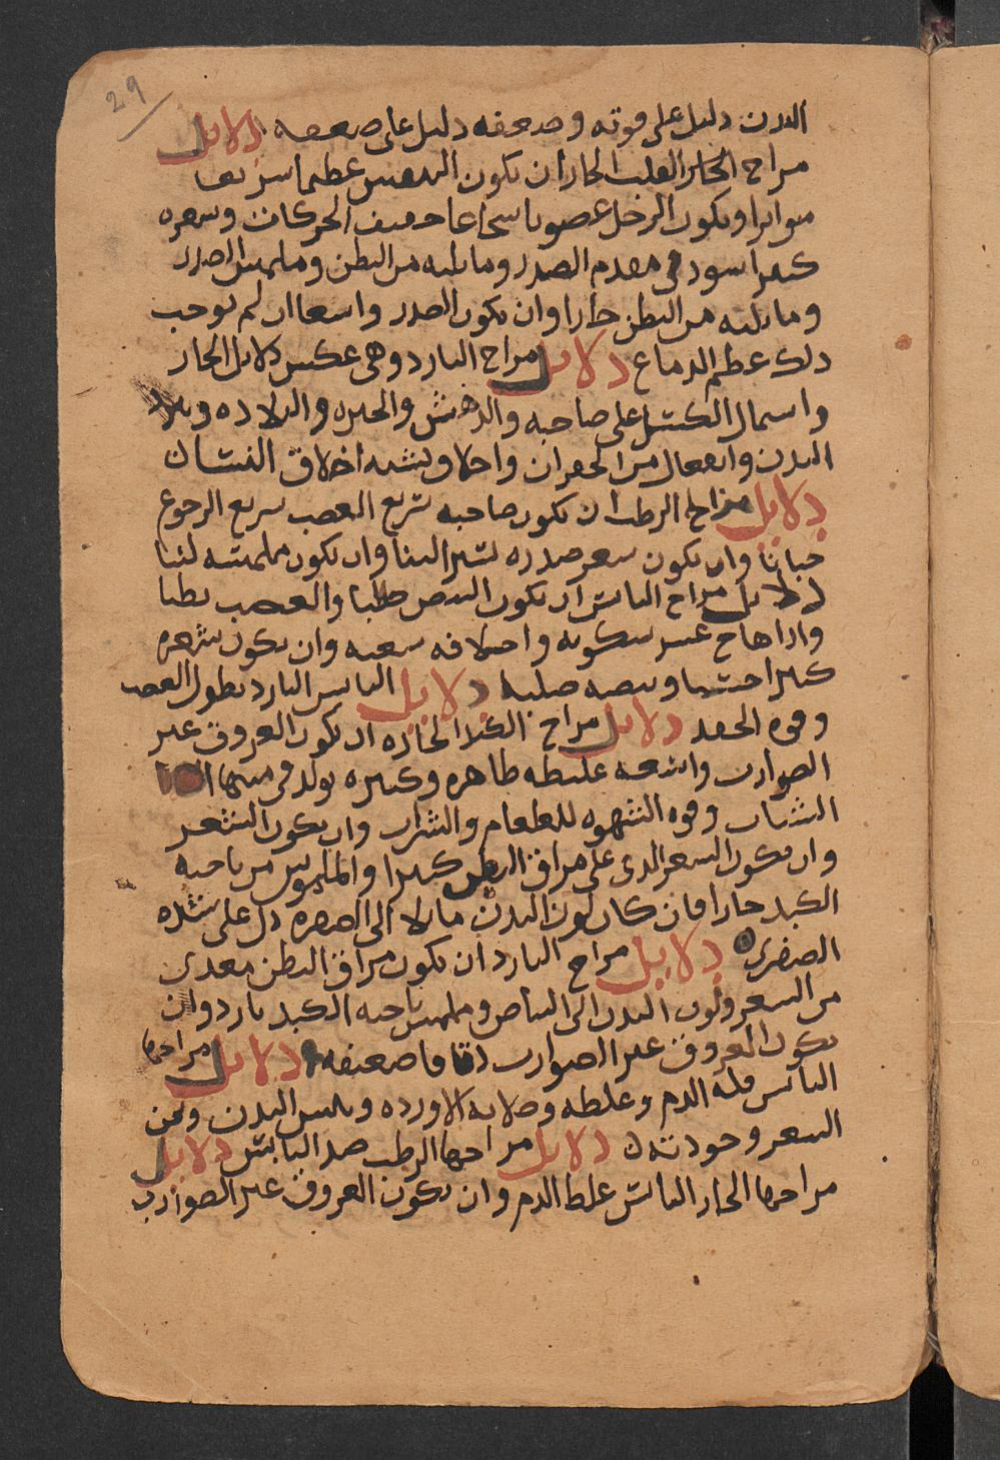 29
البدن دليل على قوته وضعفه دليل على ضعفه دلايل
مزاج الحار القلب الحار ان يكون النفس عظيما سريعا
متواترا ويكون الرجل غضوبا شجاعا خفيف الحركات وشعره
كثيرا اسود في مقدم الصدر وما يليه من البطن وملمس الصدر
وما يليه من البطن حارا وان يكون الصدر واسعا ان لم يوجب
ذلك عظم الدماغ دلايل مزاج البارد وهي عكس دلايل الحار
واسمال الكسل على صاحبه والدهش والحيره والبلاده وبرد
البدن وانفعال من الحقران واخلاق تشبه اخلاق النسان
دلايل مزاج الرطب ان يكون صاحبه سريع الغضب سريع الرجوع
جبانا وان يكون شعر صدره يسيرا لينا وان يكون ملمسه لينا
دلايل مزاج اليابس ان يكون النبض صلبا والغضب بطيا
واذا هاج عسر سكونه واخلاقه سعبه وان يكون شعره
كثيرا خشنا ونبضه صلبه دلايل اليابس البارد بطول الغضب
وقوه الحقد دلايل مزاج الكبد الحاره ان يكون العروق غير
الضوارب واسعه غليظه ظاهره وكثيره تولد في منتها
الشباب وقوه الشهوه للطعام والشراب وان يكون الشعر
وان يكون الشعر الذي على مراق البطن كثيرا والملموس من ناحيه
الكبد حارا فان كان لون البدن مايلا الى الصفره دل على شده
الصفرى دلايل مزاج البارد ان يكون مراق البطن معدى
من الشعر ولون البدن الى البياض وملمس ناحيه الكبد بارد وان
يكون العروق غير الضوارب دقاقا ضعيفه دلايل مزاجها
اليابس قله الدم وغلظه وصلابه الاورده ويبس البدن
الشعر وجودته دلايل مزاجها الرطب ضد اليابس دلايل
مزاجها الحار اليابس غلظ الدم وان يكون العروق غير الضوارب